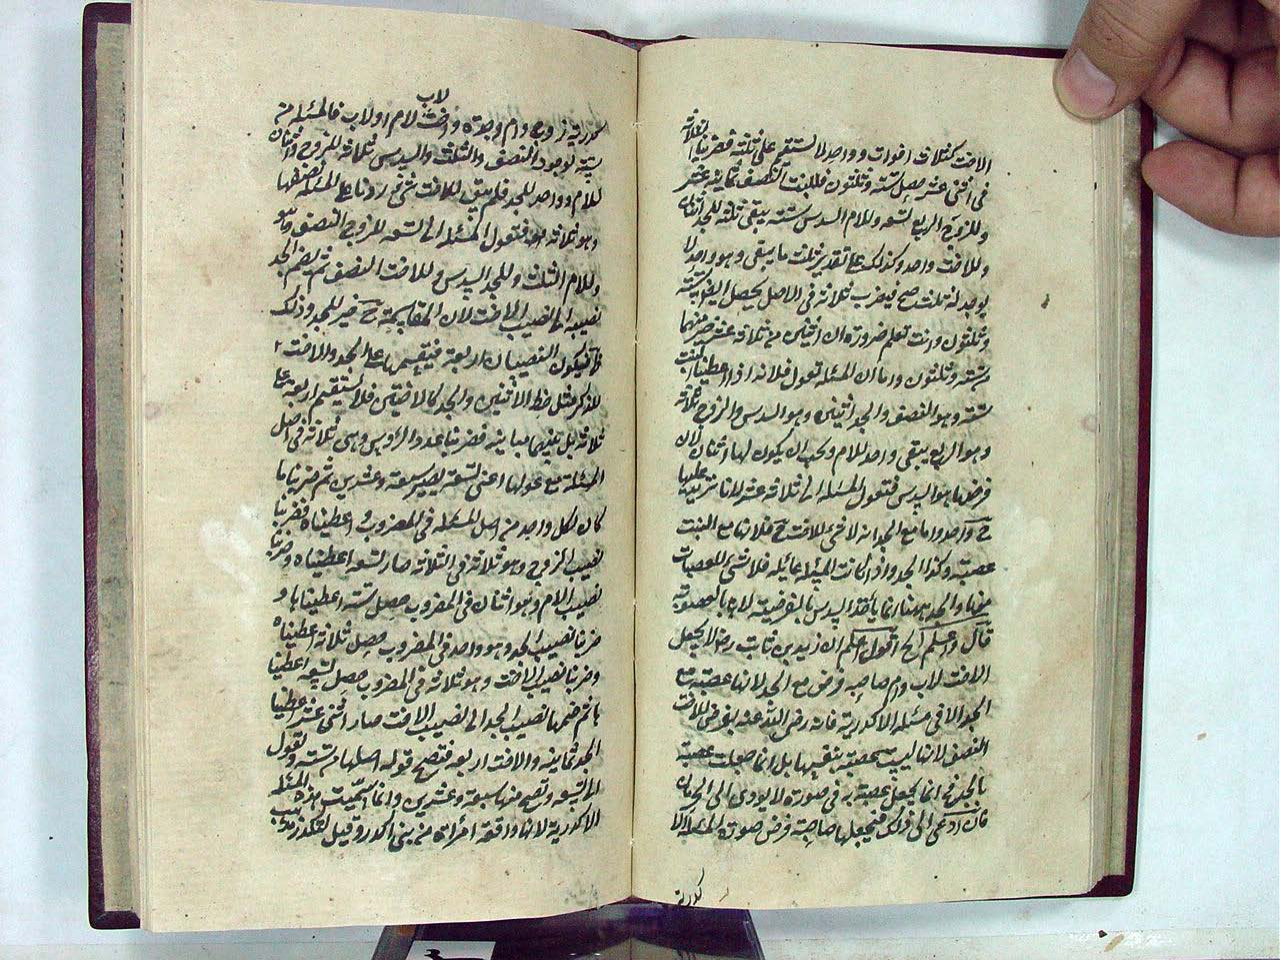 الاخت كثلاث اخوات وواحد لا تستقيم على ثلثة فضربنا الثلاثة
فى اثنى عشر حصل ستة وثلثون فللبنت النصف ثمانية عشر
وللزوج الربع تسعة وللام السدس ستة يبقى ثلثة للجد اثنان
وللاخت واحد وكذلك على تقدير ثلث ما يبقى وهو واحد لا
يوجد له ثلث صح فيضرب ثلاثة فى الاصل يحصل ستة
وثلثون وانت تعلم ضرورة ان اثنين من ثلاثة عشر خير منهما
ستة وثلثون واما ان المسئلة تعول فلانه اذا اعطينا البنت
ستة وهو النصف والجد اثنين وهو السدس والزوج ثلاثة
وهو الربع يبقى واحد للام ويجب ان يكون لها اثنان لان
فرضها هو السدس فتعول المسئلة الى ثلاثة عشر
واما مع الجد انه لا شئ للاخت فلانها مع البنت
عصبة وكذا الجد واذا كانت المسئلة عائلة فلا شئ للعصبات
والجد ههنا انما يأخذ السدس بالفرضية لا بالعصوبة
قال واعلم الخ اقول اعلم ان زيد بن ثابت رضى لا يجعل
الاخت لاب وام صاحبة فرض مع الجد لانها عصبة مع
الجد الا فى مسئلة الاكدرية فانه رضى الله عنه يفرض للاخت
النصف لانها ليست بعصبة بنفسها بل انما صارت عصبة
بالجد انما يجعل عصبة به فى صورة لا يؤدى الى الحرمان
فان ادى الى ذلك فيجعلها صاحبة فرض صورة المسئلة الا
كدرية
كدرية زوج وام وجد واخت لاب وام او لاب فالمسئلة من
ستة لوجود النصف والثلث والسدس ثلاثة للزوج واثنان
للام وواحد للجد فلم يبق للاخت شئ زدنا على المسئلة نصفها
وهو ثلاثة فتعول المسئلة الى التسعة للزوج النصف
وللام الثلث وللجد السدس وللاخت النصف ثم يضم الجد
نصيبه الى نصيب الاخت لان المقاسمة خير للجد وذلك
فيكون النصيبان اربعة فيقسم على الجد والاخت
للذكر مثل حظ الانثيين والجد كالاختين فلا تستقيم اربعة على
ثلاثة بل بينهما مباينة فضربنا عدد الرؤس وهى ثلاثة فى اصل
المسئلة مع عولها اعنى تسعة يصير سبعة وعشرين ثم ضربنا ما
كان لكل واحد من اصل المسئلة فى المضروب واعطيناه فضربنا
نصيب الزوج وهو ثلاثة فى الثلاثة صار تسعة اعطيناه وضربنا
نصيب الام وهو اثنان فى المضروب حصل ستة اعطيناها و
ضربنا نصيب الجد وهو واحد فى المضروب حصل ثلاثة اعطيناه
وضربنا نصيب الاخت وهو ثلاثة فى المضروب حصل تسعة اعطينا
ها ثم ضمها نصيب الجد الى نصيب الاخت صار اثنى عشر اعطينا
الجد ثمانية والاخت اربعة فتصح قوله اصلها من ستة وتعول
الى تسعة وتصح من سبعة وعشرين وانما سميت هذه المسئلة
الاكدرية لانها واقعة امرأة من بنى اكدر وقيل